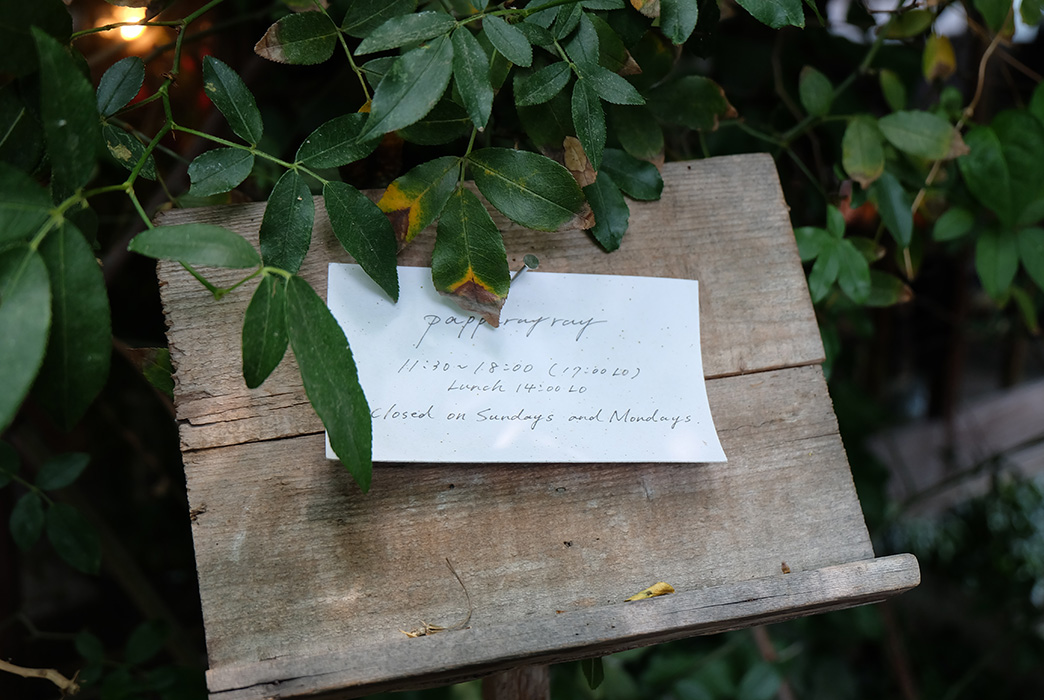 11:30~18:00 (17:00 LO)
Lunch 14:00 LO
Closed on Sundays and Mondays.